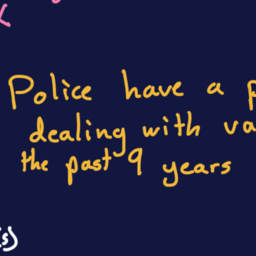 Police have a
dealing with va
the past 9 years
(s)